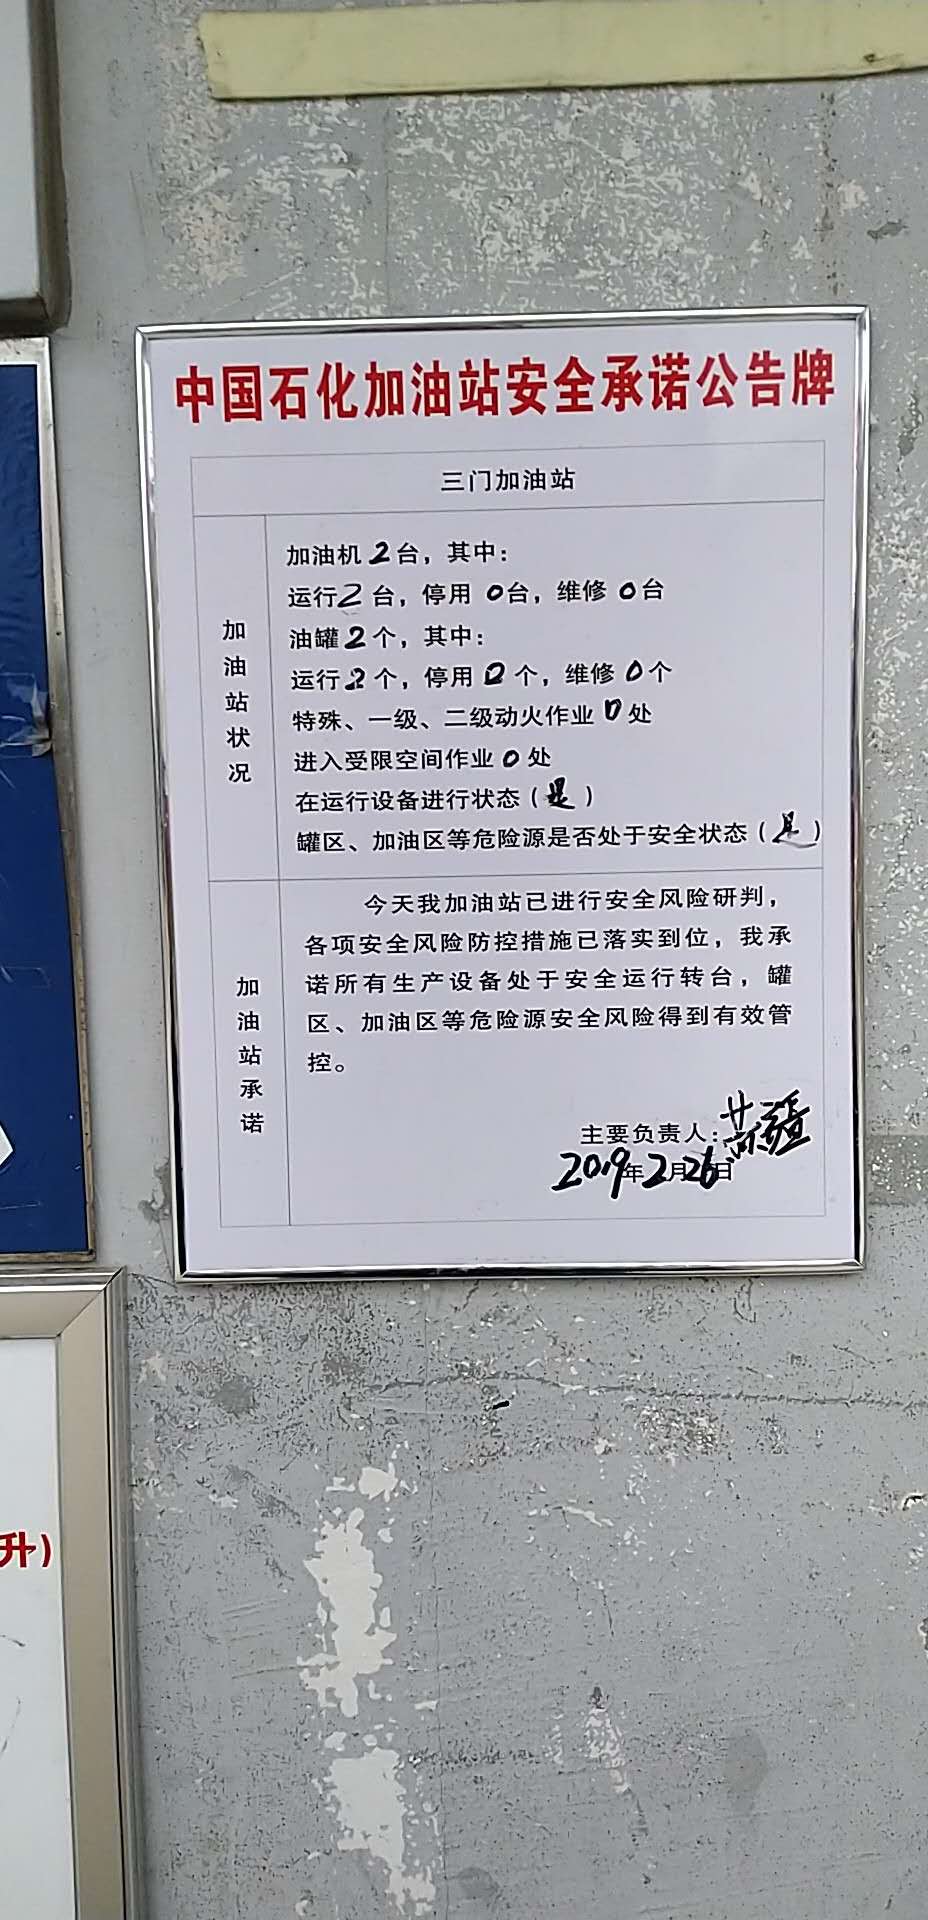 中国石化加油站安全承诺公告牌
三门加油站
加油站状况
加油机2台，其中：
运行2台，停用0台，维修0台
油罐2个，其中：
运行2个，停用0个，维修0个
特殊、一级、二级动火作业0处
进入受限空间作业0处
在运行设备进行状态（是）
罐区、加油区等危险源是否处于安全状态（是）
加油站承诺
今天我加油站已进行安全风险研判，
各项安全风险防控措施已落实到位，我承
诺所有生产设备处于安全运行转台，罐
区、加油区等危险源安全风险得到有效管
控。
主要负责人：
2019年2月26日
升）